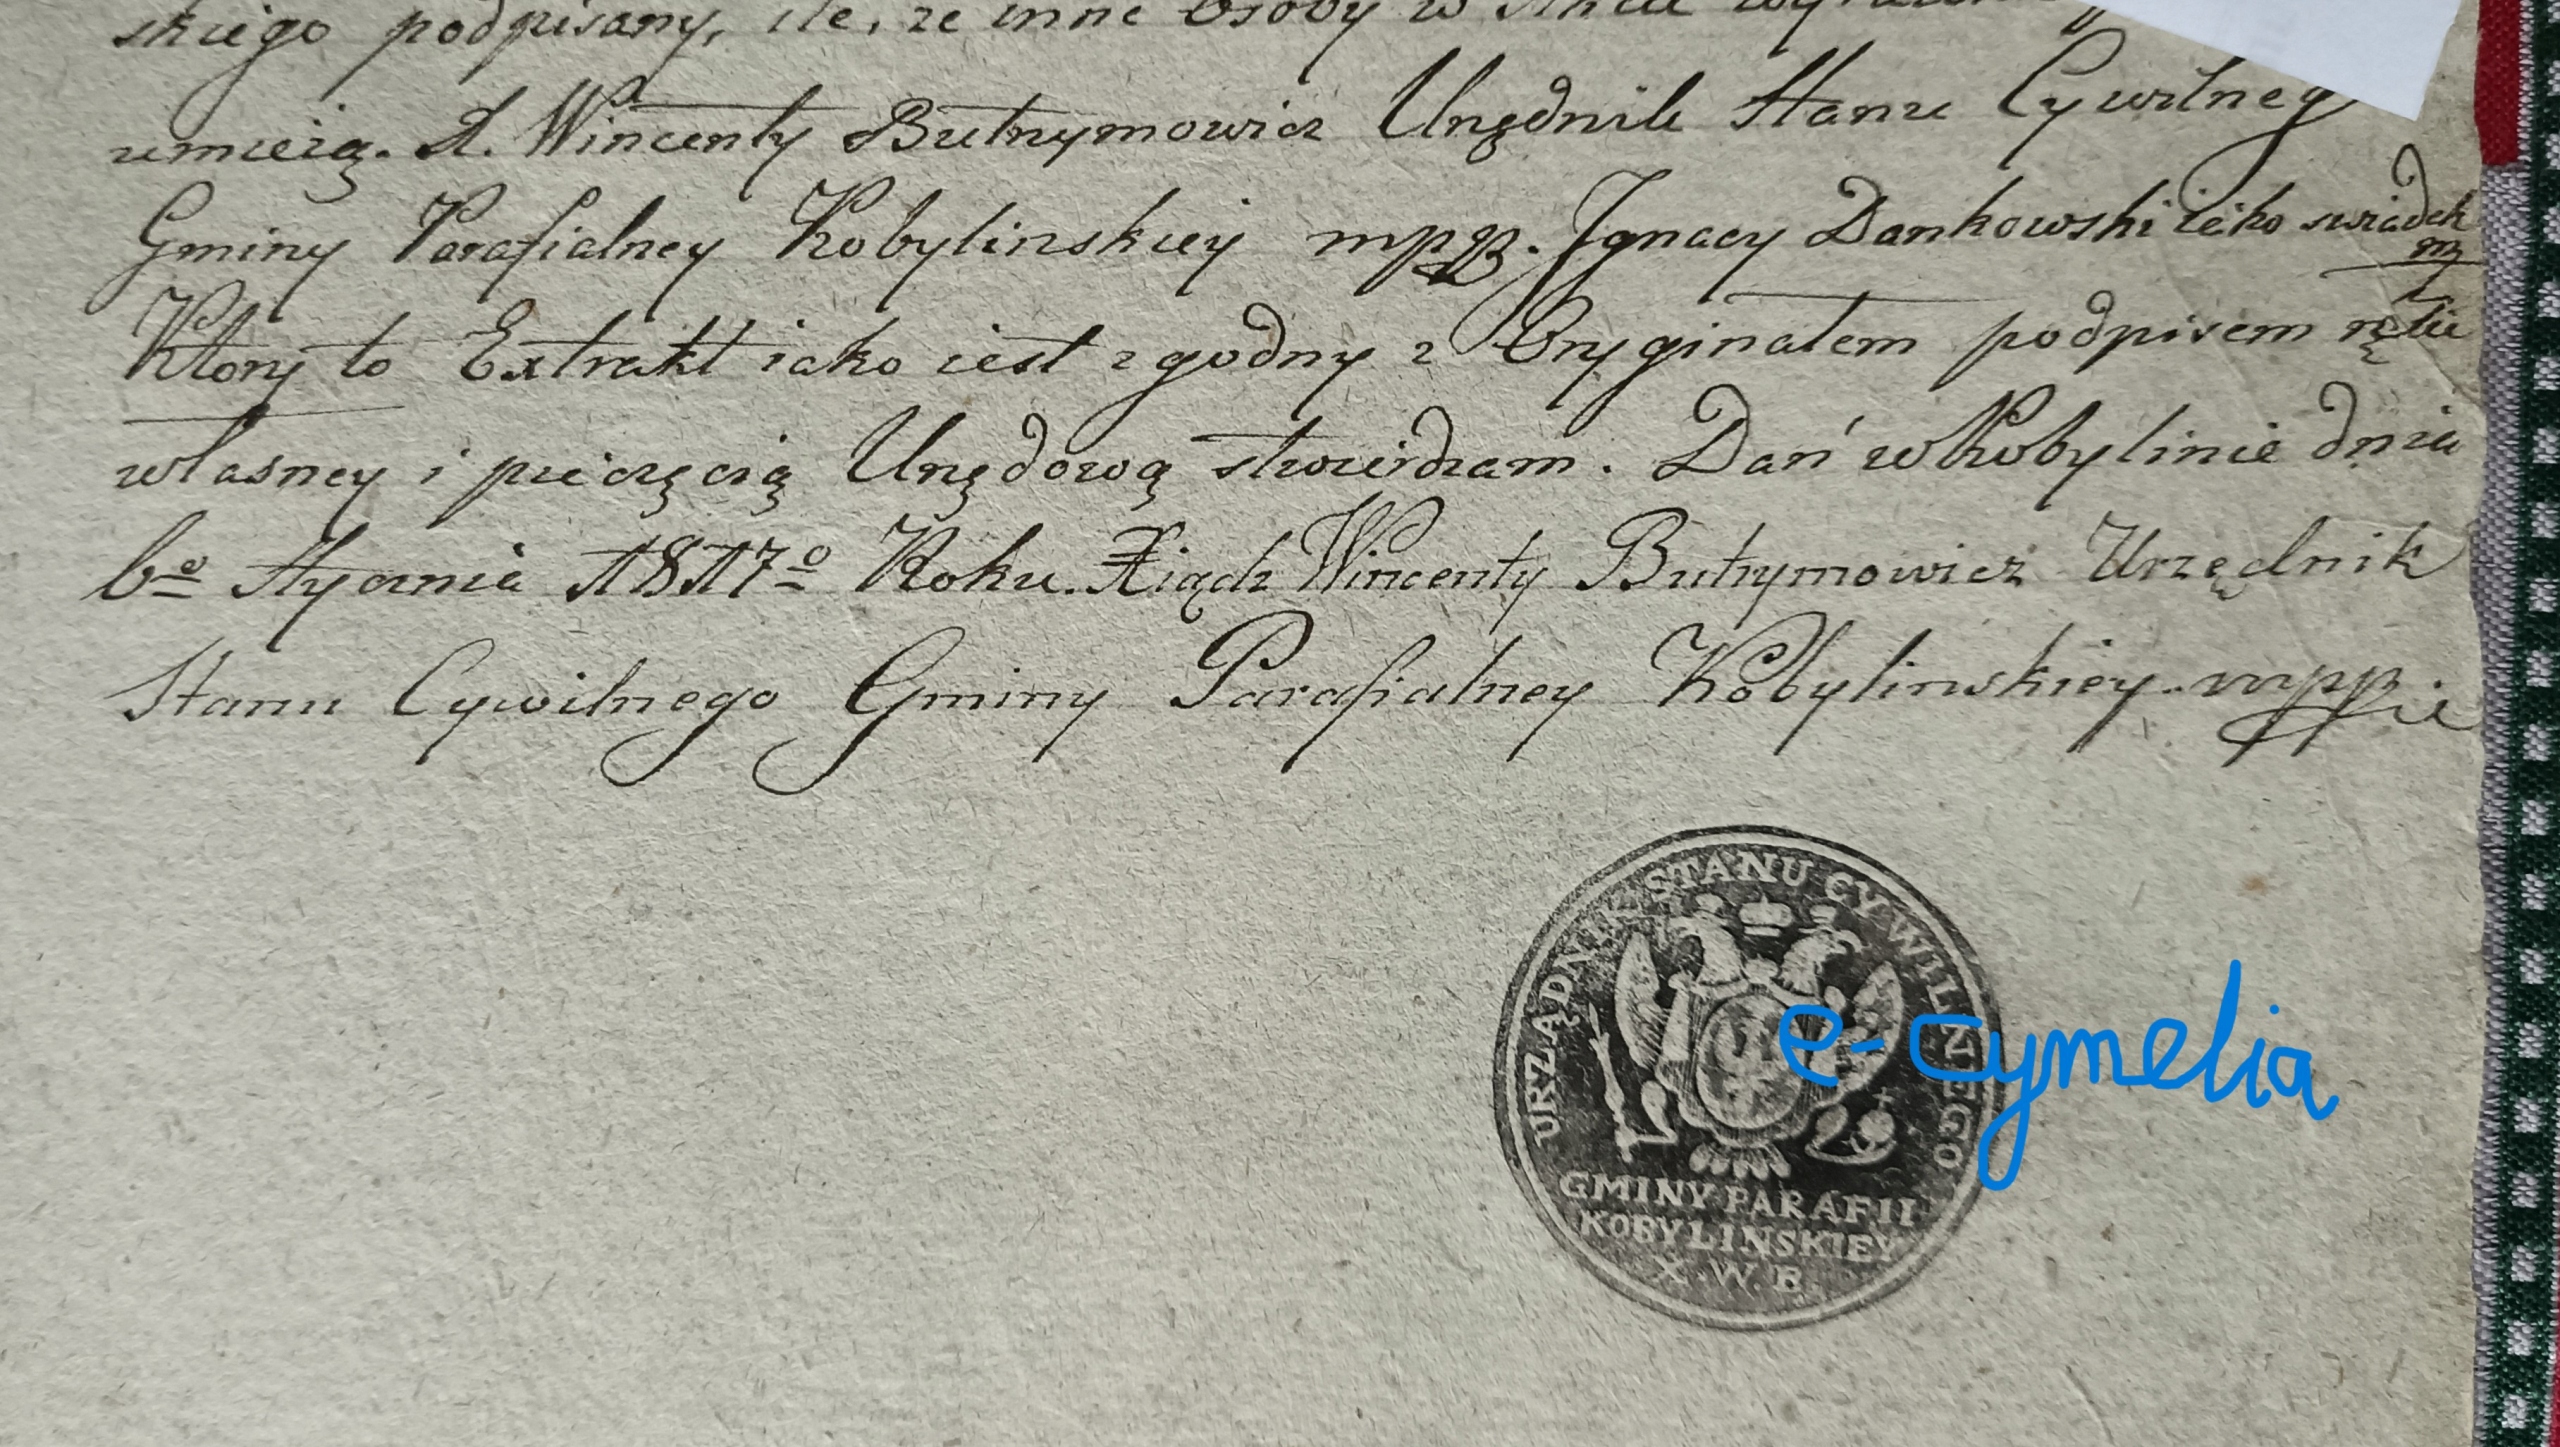 skiego podpisany, ile, ze inne Osoby w Akcie
umieią. X. Wincenty Butrymowicz Urzędnik Stanu Cywilneg
Gminy Parafialney Kobylinskiey mpp. Ignacy Dankowski iako swiadek
mp
Ktory to Extrakt iako iest zgodny z Oryginałem podpisem ręki
własney i pieczęcią Urzędową stwierdzam. Dań w Kobylinie dnia
6º Stycznia 1817º Roku. Xiądz Wincenty Butrymowicz Urzędnik
Stanu Cywilnego Gminy Parafialney Kobylinskiey mppie
URZĄDNIK STANU CYWILNEGO
GMINY PARAFII
KOBYLINSKIEY
X. W. B.
e-cymelia